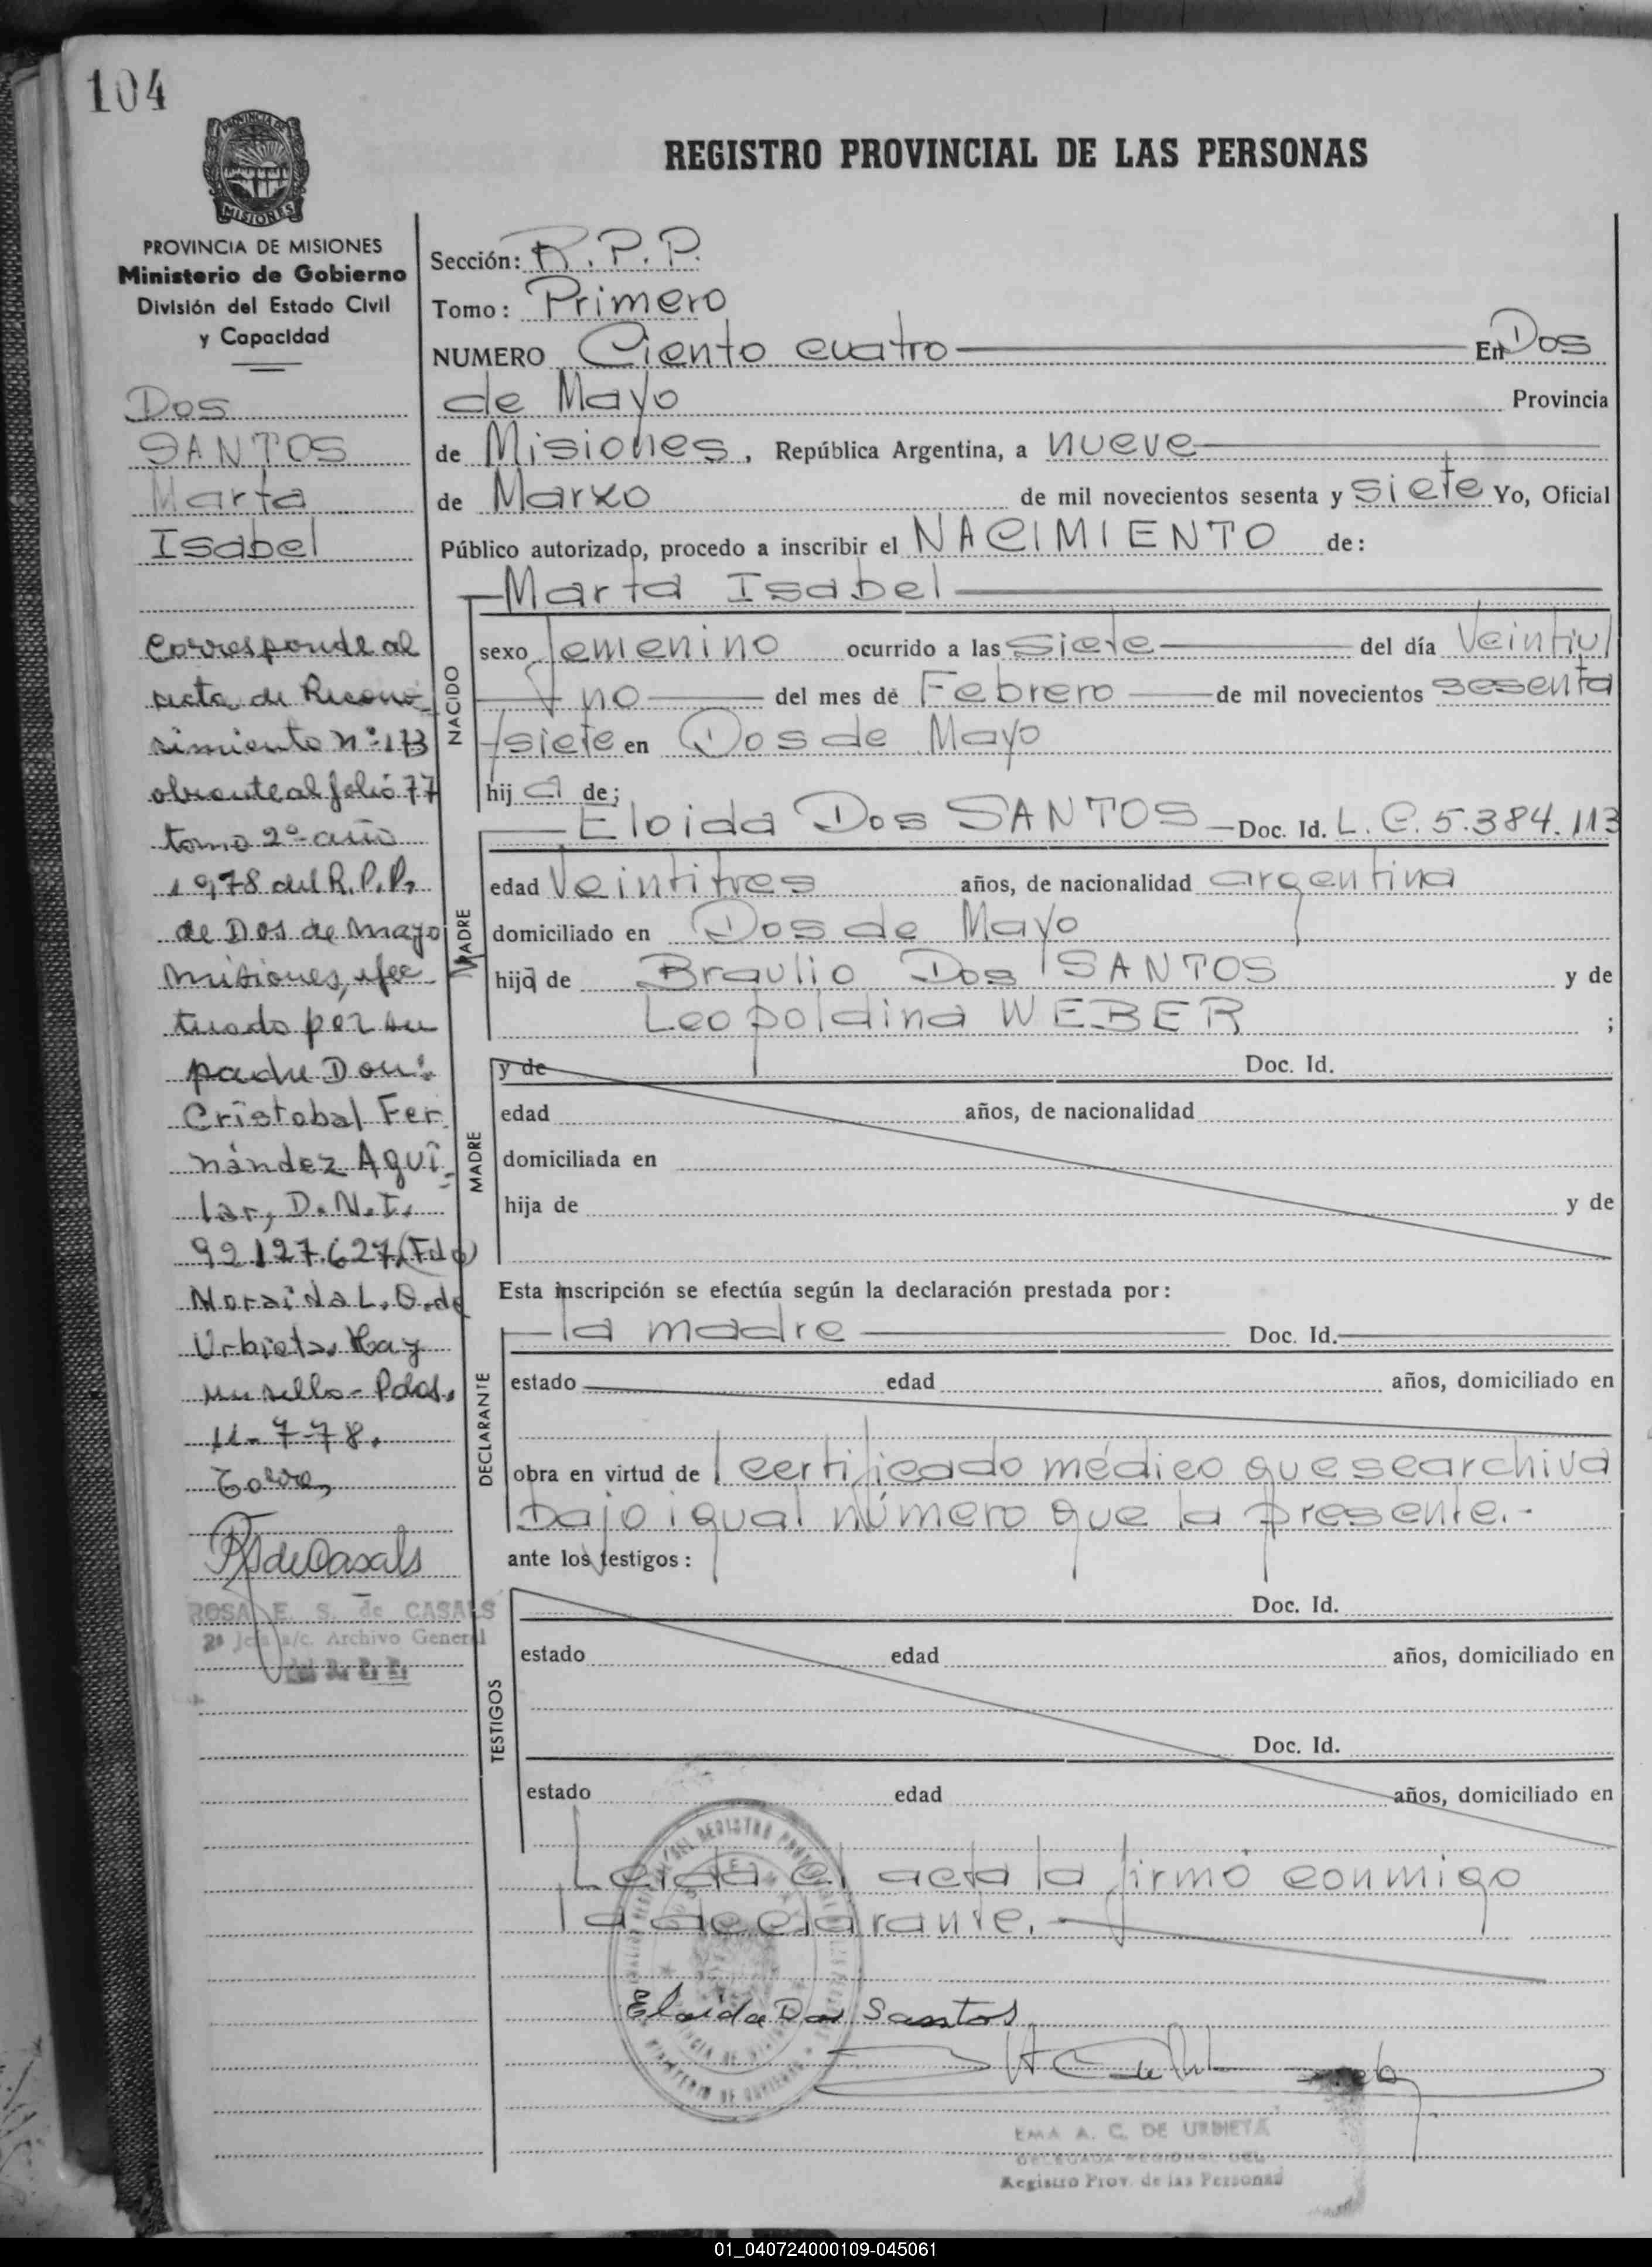 104
PROVINCIA DE
MISIONES
REGISTRO PROVINCIAL DE LAS PERSONAS
PROVINCIA DE MISIONES
Ministerio de Gobierno
División del Estado Civil
y Capacidad
Dos
SANTOS
Marta
Isabel
Corresponde al
acta de Recono-
simiento nº 173
obrante al folio 77
tomo 2º año
1978 del R.P.P.
de Dos de Mayo
Misiones, efec
tuado por su
padre Don:
Cristobal Fer
nández Agui-
lar, D.N.I.
92.127.627 (Fdo)
L. O. de
Urbieta. Hay
un sello - Pdas.
11-7-78.
ROSA E. S. de CASALS
2ª Jefa a/c. Archivo General
del R. P. P.
Sección: R.P.P.
Tomo: Primero
NUMERO Ciento cuatro En Dos
de Mayo Provincia
de Misiones, República Argentina, a nueve
de Marzo de mil novecientos sesenta y siete Yo, Oficial
Público autorizado, procedo a inscribir el NACIMIENTO de:
Marta Isabel
NACIDO
sexo femenino ocurrido a las siete del día Veintiu/
/no del mes de Febrero de mil novecientos sesenta
/siete en Dos de Mayo
hija de;
Eloida Dos SANTOS Doc. Id. L.C. 5.384.113
MADRE
edad Veintitres años, de nacionalidad argentina
domiciliado en Dos de Mayo
hija de Braulio Dos SANTOS y de
Leopoldina WEBER ;
y de Doc. Id.
MADRE
edad años, de nacionalidad
domiciliada en
hija de y de
Esta inscripción se efectúa según la declaración prestada por:
la madre Doc. Id.
DECLARANTE
estado edad años, domiciliado en
obra en virtud de certificado médico que se archiva
bajo igual número que la presente.-
ante los testigos:
Doc. Id.
TESTIGOS
estado edad años, domiciliado en
Doc. Id.
estado edad años, domiciliado en
Leida el acta la firmó conmigo
la declarante.
Eloida Dos Santos
EMA A. C. DE URBIETA
DELEGADA REGIONAL DEL
Registro Prov. de las Personas
01_040724000109-045061